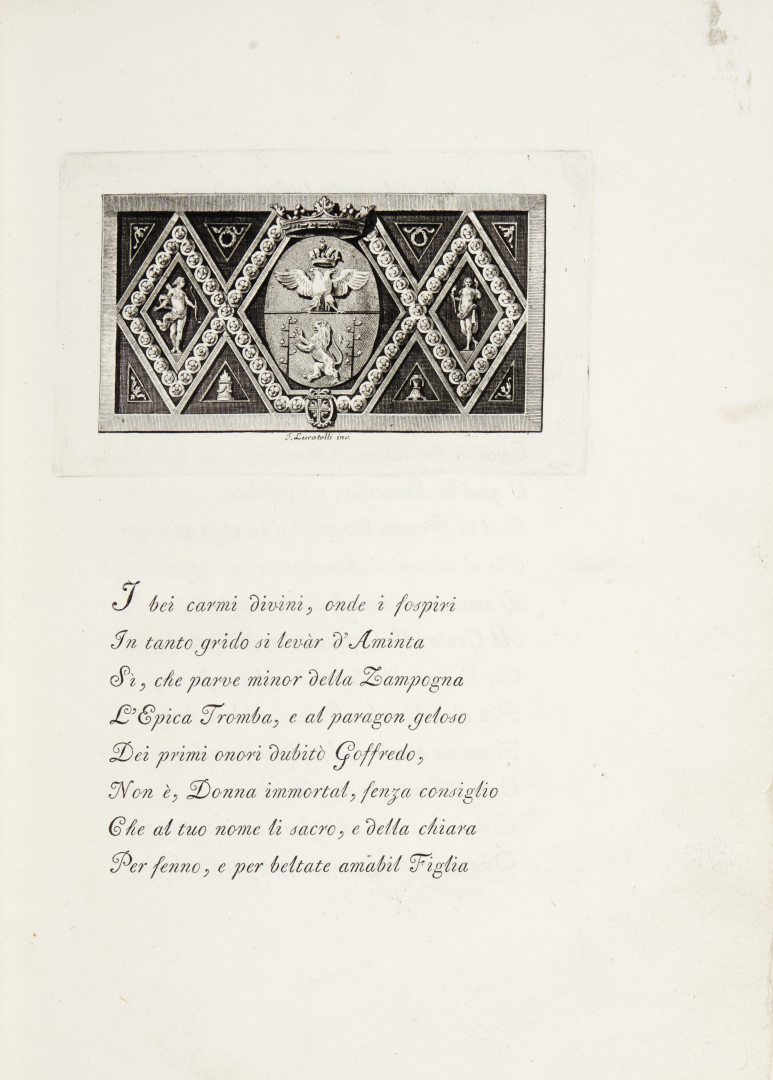 J. Lucatelli inv.
I bei carmi divini, onde i ſospiri
In tanto grido si levàr d'Aminta
Sì, che parve minor della Zampogna
L'Epica Tromba, e al paragon geloso
Dei primi onori dubitò Goffredo,
Non è, Donna immortal, ſenza consiglio
Che al tuo nome li sacro, e della chiara
Per ſenno, e per beltate amabil Figlia